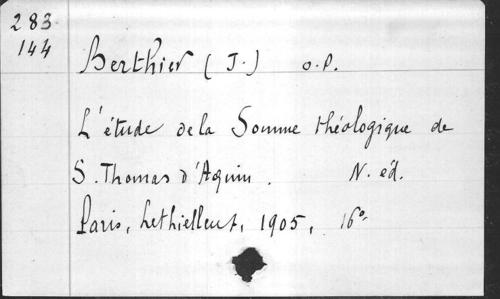 283
144
Berthier (J.) O.P.
L'étude de la Somme théologique de
S. Thomas d'Aquin. N. éd.
Paris, Lethielleux, 1905, 16º.